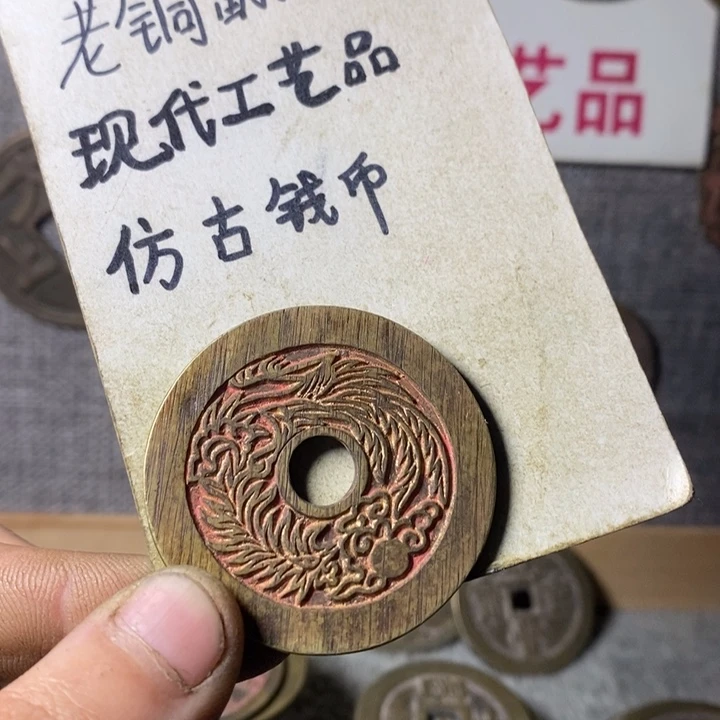 老铜
现代工艺品
仿古钱币
艺品